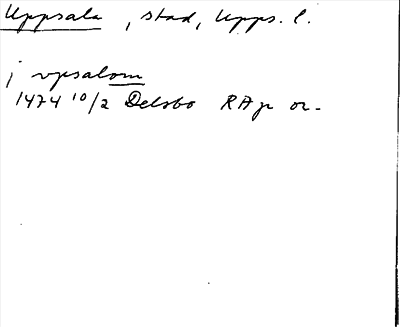 Uppsala, stad, Upps. l.
j vpsalom
1474 10/2 Delsbo RAp or.